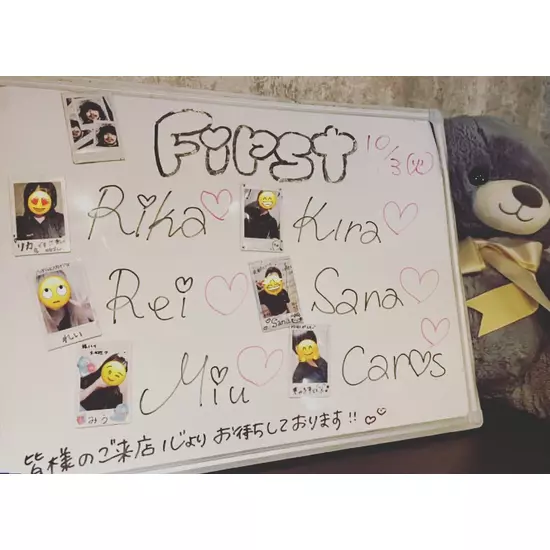 First
10/3(火)
Rika
Kira
Rei
Sana
Miu
Caros
リカ
れい
Sana
みう
皆様のご来店心よりお待ちしております!!